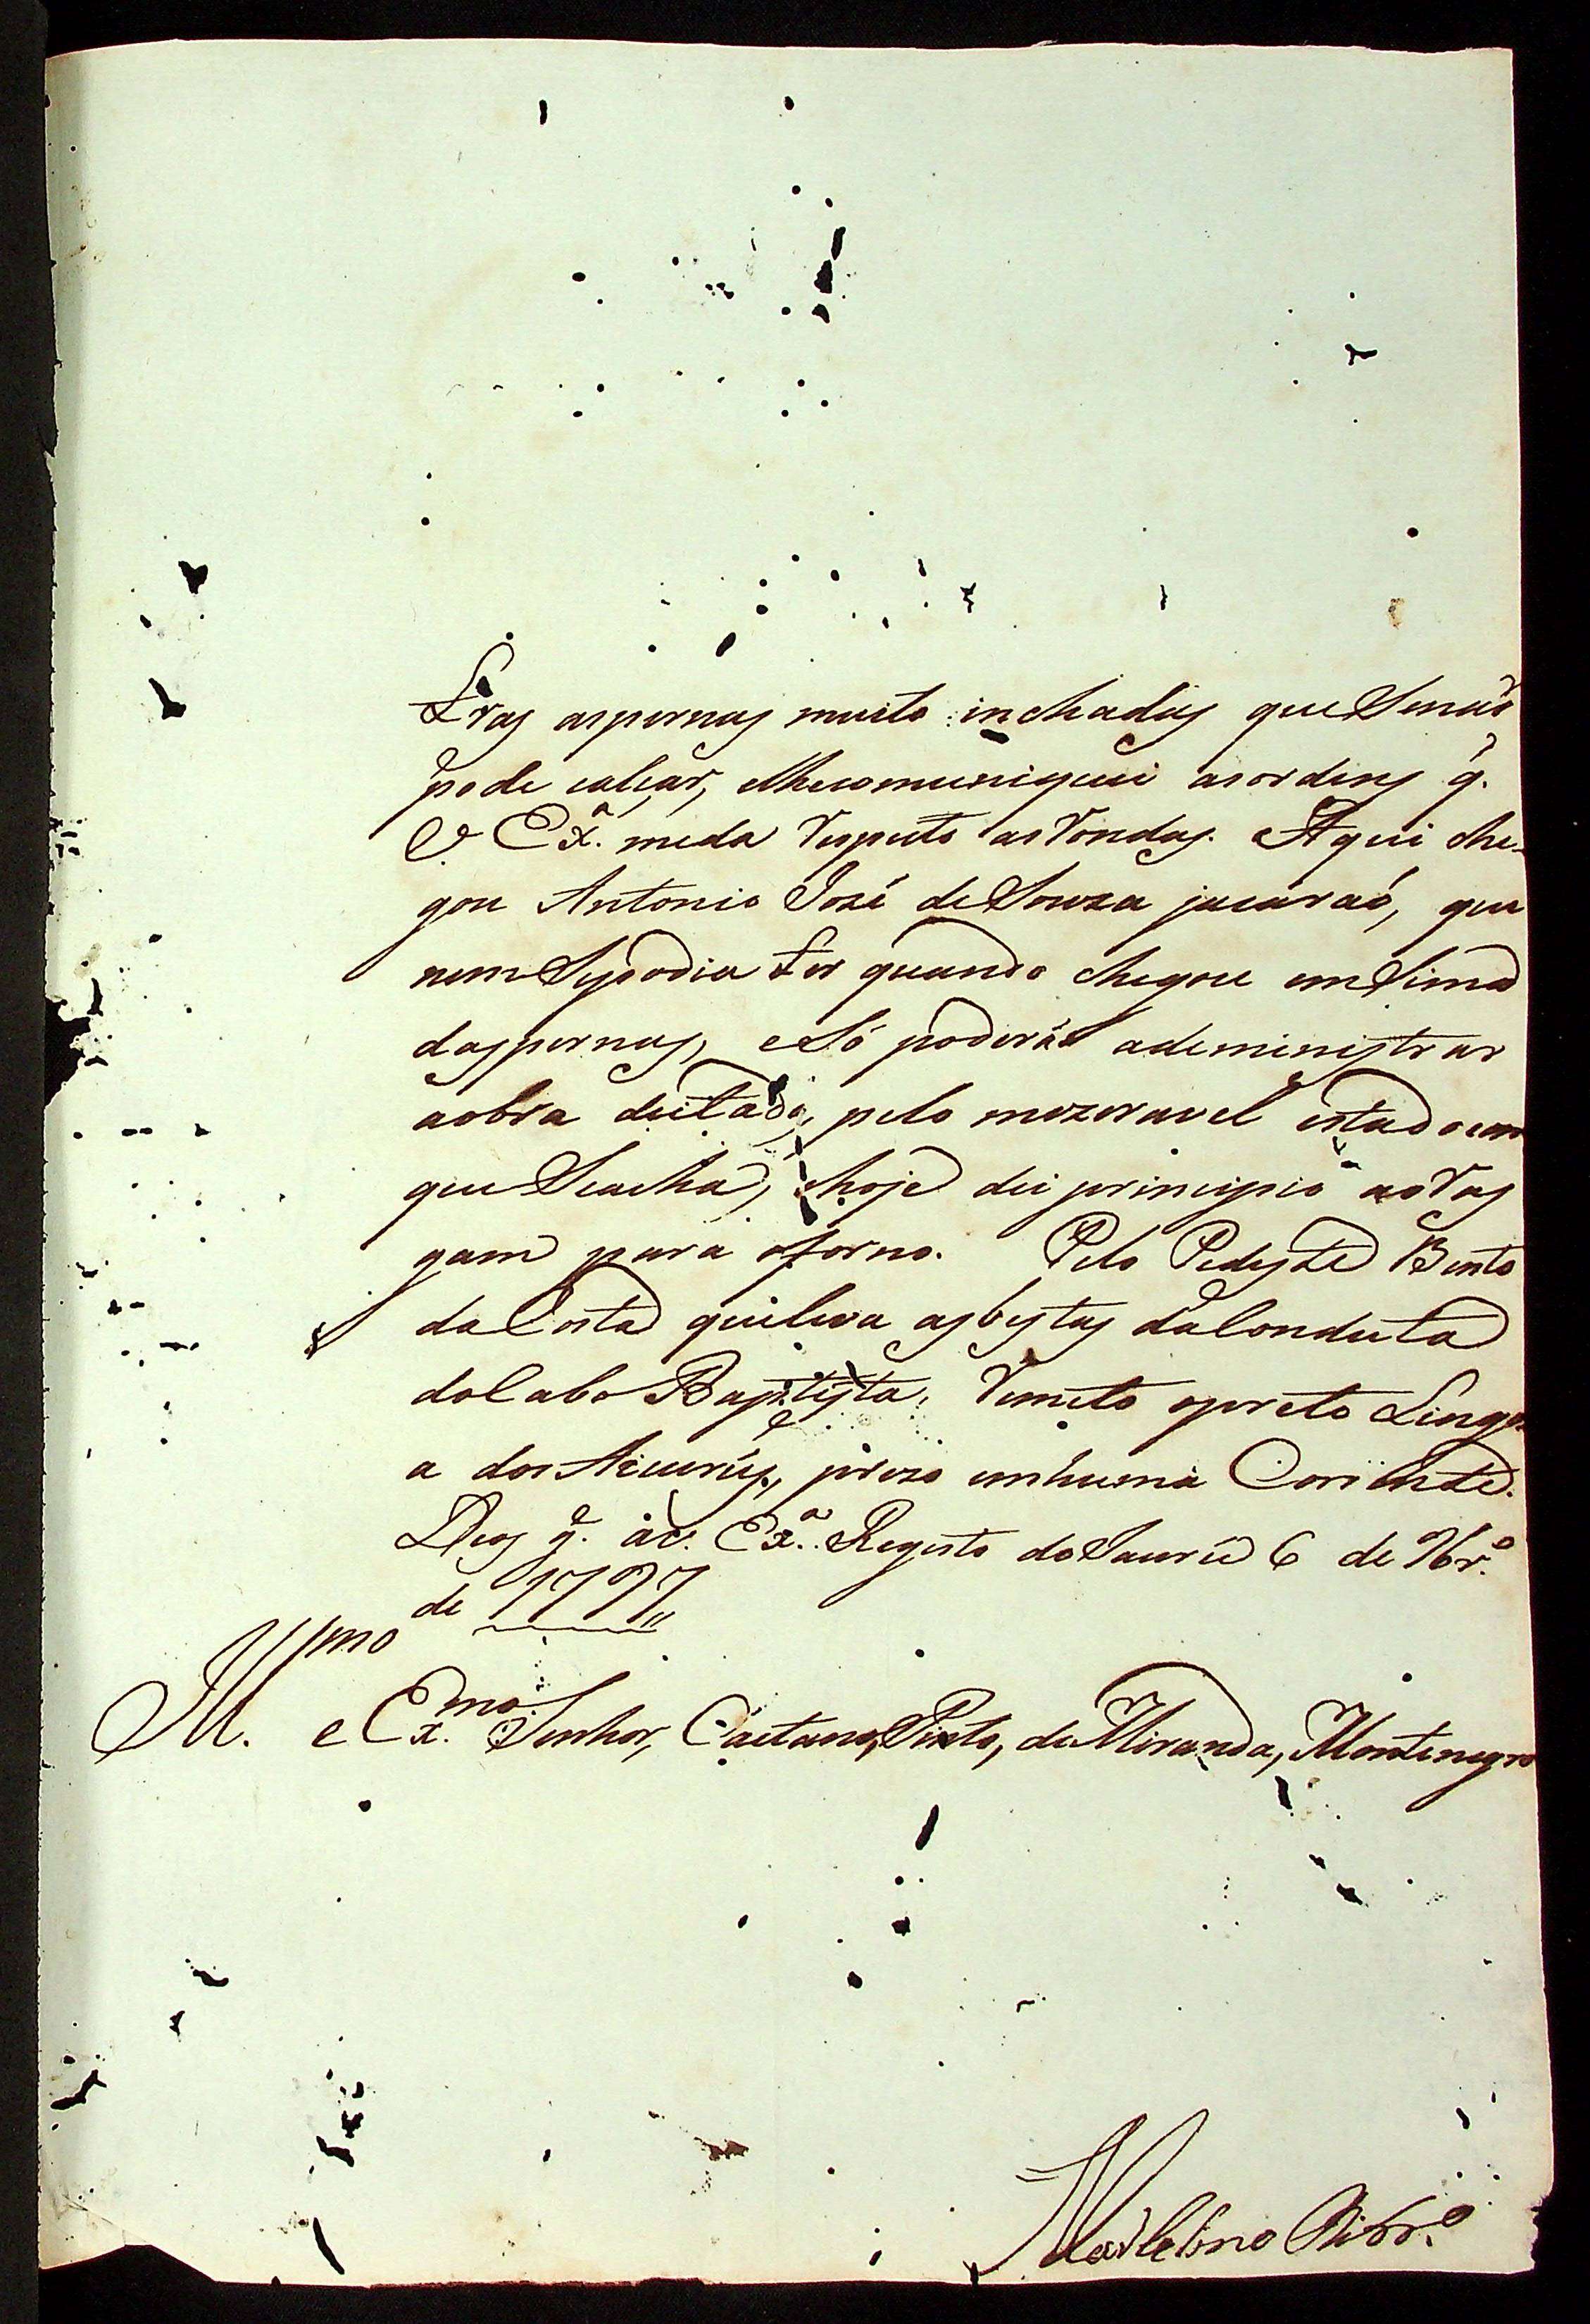 tras aspernas muito inchadas que Senaõ
pode calçar, elhecomuniquei asordens q.
V. Exª. meda respeito asrondas. Aqui che-
gou Antonio Jozé deSouza jacaraó, que
nem Sepodia ter quando chegou emSima
daspernas, eSó poderá adeministrar
aobra deitado, pelo mozeravel estado em
que Seacha, ehoje dei principio aoras
gam para oforno. Pelo Pedeste Bento
daCosta queleva asbestas daConduta
doCabo Baptista, remeto opreto Lingo
a dos Aicurús, prezo emhuma Corrente.
Deos g.e aV. Exª. Registo doJaurú 6 de 9br.º
de 1797,,
Ill.mo e Ex.mo Senhor, Caetano, Pinto, deMiranda, Montenegro
Marcelino Ribr.º